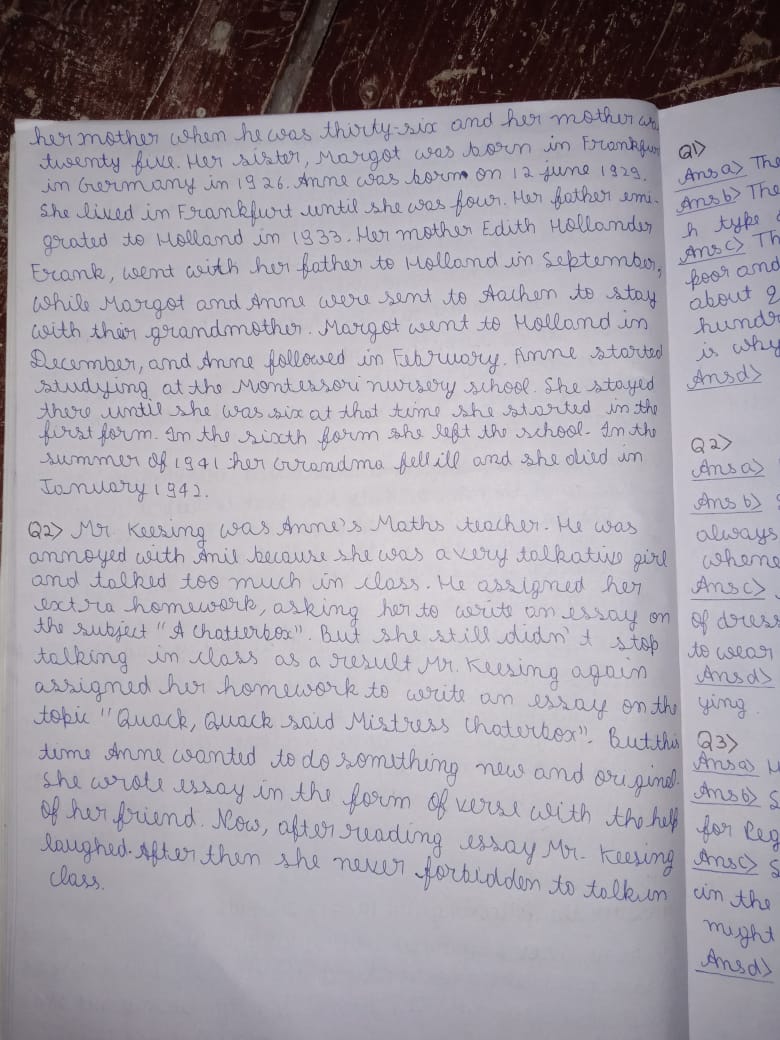 her mother when he was thirty-six and her mother wa
twenty five. Her sister, Margot was born in Frankfur
in Germany in 1926. Anne was born on 12 june 1929.
She lived in Frankfurt until she was four. Her father emi-
grated to Holland in 1933. Her mother Edith Hollander
Frank, went with her father to Holland in September,
while Margot and Anne were sent to Aachen to stay
with their grandmother. Margot went to Holland in
December, and Anne followed in February. Anne started
studying at the Montessori nursery school. She stayed
there until she was six at that time she started in the
first form. In the sixth form she left the school. In the
summer of 1941 her Grandma fell ill and she died in
January 1942.
Q2> Mr. Keesing was Anne's Maths teacher. He was
annoyed with Anil because she was a very talkative girl
and talked too much in class. He assigned her
extra homework, asking her to write an essay on
the subject "A Chatterbox". But she still didn't stop
talking in class as a result Mr. Keesing again
assigned her homework to write an essay on the
topic "Quack, Quack said Mistress Chaterbox". But this
time Anne wanted to do something new and original.
She wrote essay in the form of verse with the help
of her friend. Now, after reading essay Mr. Keesing
laughed. After then she never forbidden to talk in
class.
Q1>
Ansa> The
Ansb> The
h type
Ansc> Th
poor and
about 2
hundr
is why
Ansd>
Q2>
Ansa>
Ans b>
always
whene
Ansc>
of dress
to wear
Ansd>
ying.
Q3>
Ansa> H
Ansb> S
for Reg
Ansc> S
in the
might
Ansd>